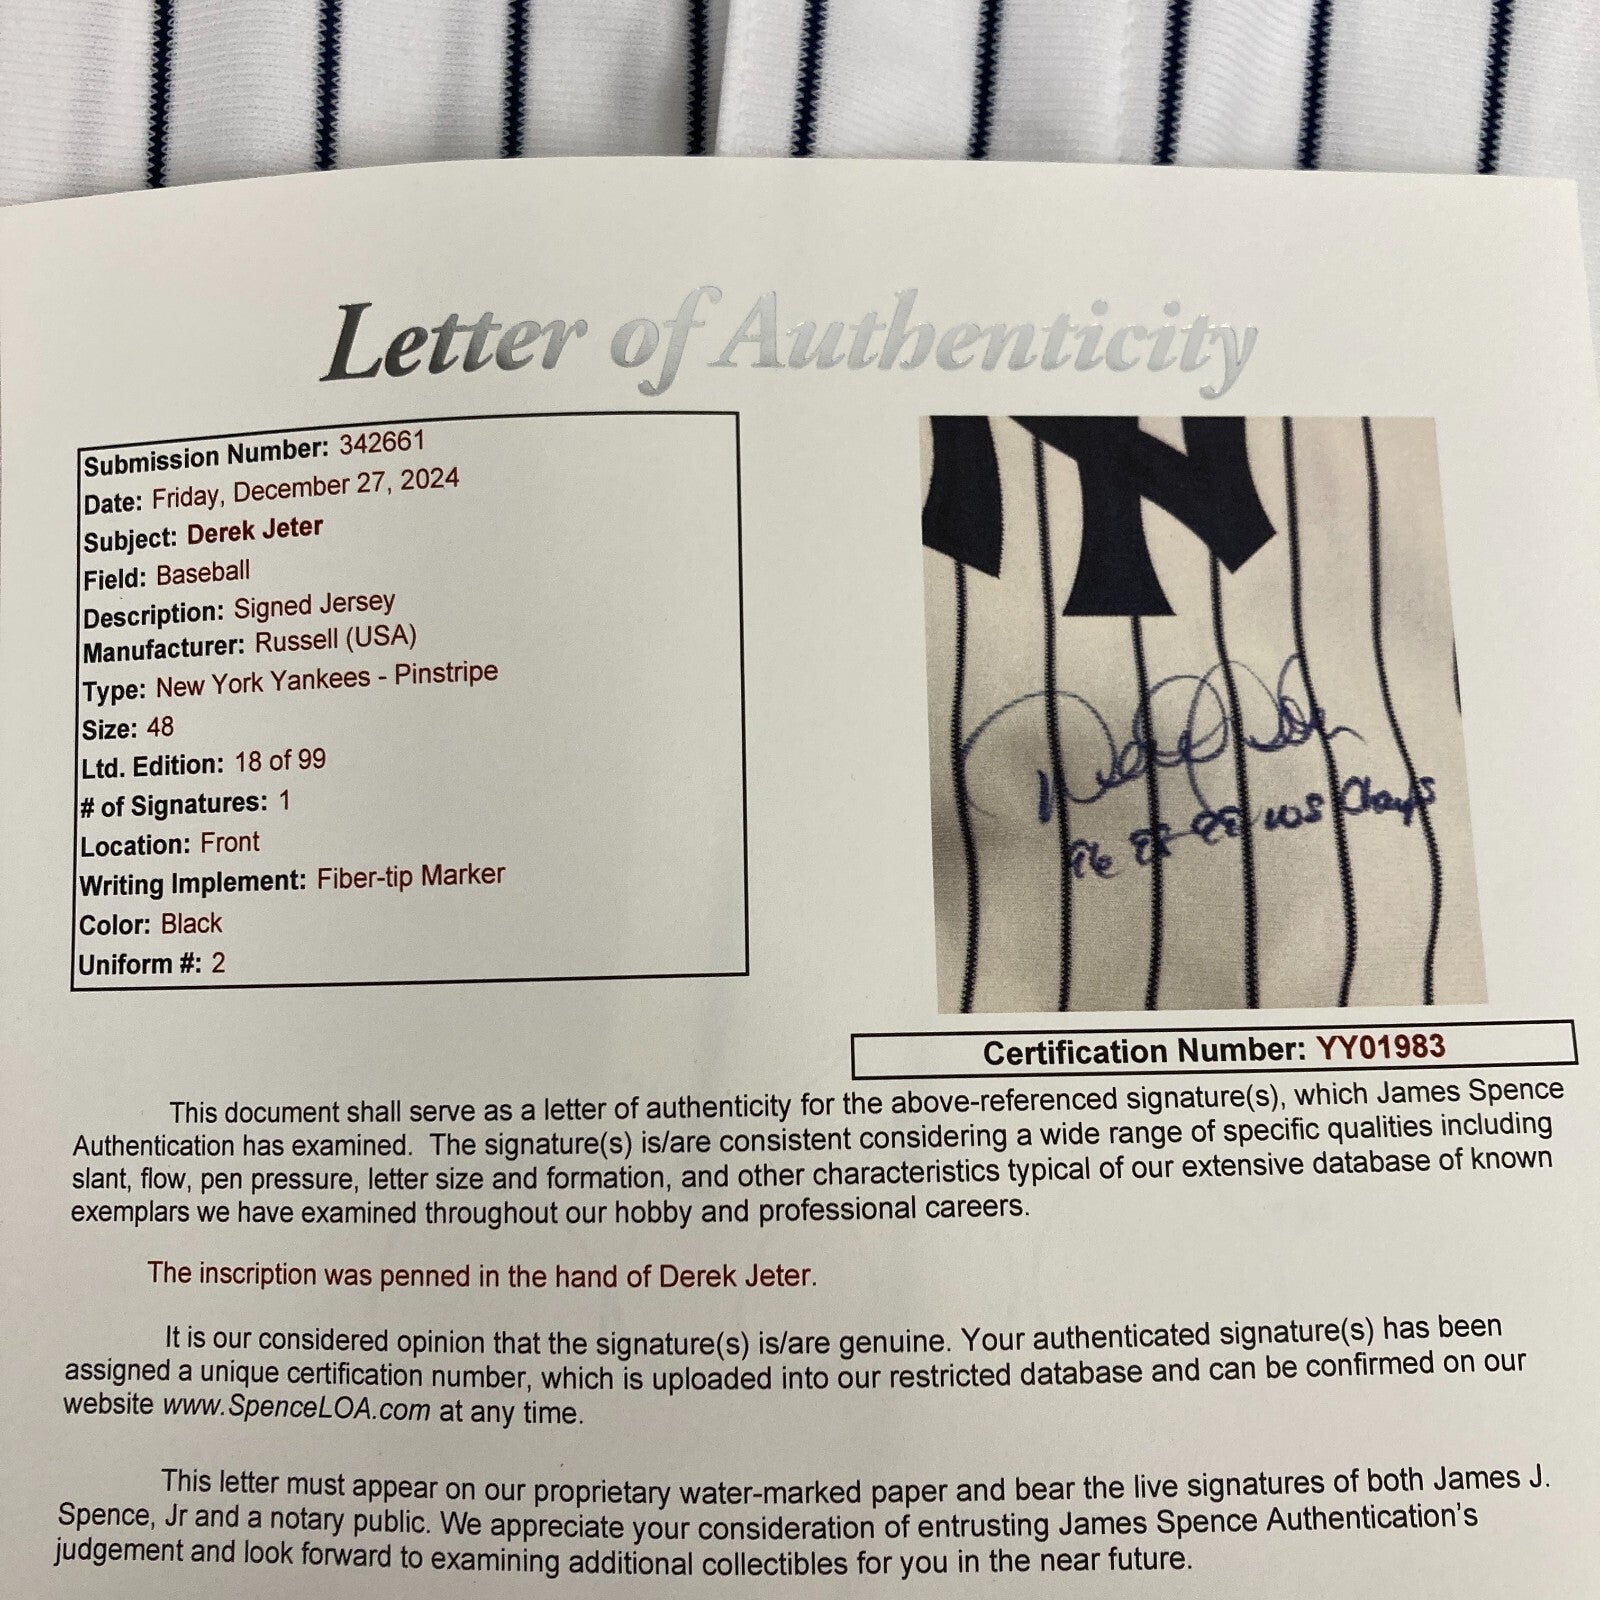 Letter of Authenticity
Submission Number: 342661
Date: Friday, December 27, 2024
Subject: Derek Jeter
Field: Baseball
Description: Signed Jersey
Manufacturer: Russell (USA)
Type: New York Yankees - Pinstripe
Size: 48
Ltd. Edition: 18 of 99
# of Signatures: 1
Location: Front
Writing Implement: Fiber-tip Marker
Color: Black
Uniform #: 2
NY
Derek Jeter
96 98-99 WS Champs
Certification Number: YY01983
This document shall serve as a letter of authenticity for the above-referenced signature(s), which James Spence
Authentication has examined. The signature(s) is/are consistent considering a wide range of specific qualities including
slant, flow, pen pressure, letter size and formation, and other characteristics typical of our extensive database of known
exemplars we have examined throughout our hobby and professional careers.
The inscription was penned in the hand of Derek Jeter.
It is our considered opinion that the signature(s) is/are genuine. Your authenticated signature(s) has been
assigned a unique certification number, which is uploaded into our restricted database and can be confirmed on our
website www.SpenceLOA.com at any time.
This letter must appear on our proprietary water-marked paper and bear the live signatures of both James J.
Spence, Jr and a notary public. We appreciate your consideration of entrusting James Spence Authentication's
judgement and look forward to examining additional collectibles for you in the near future.